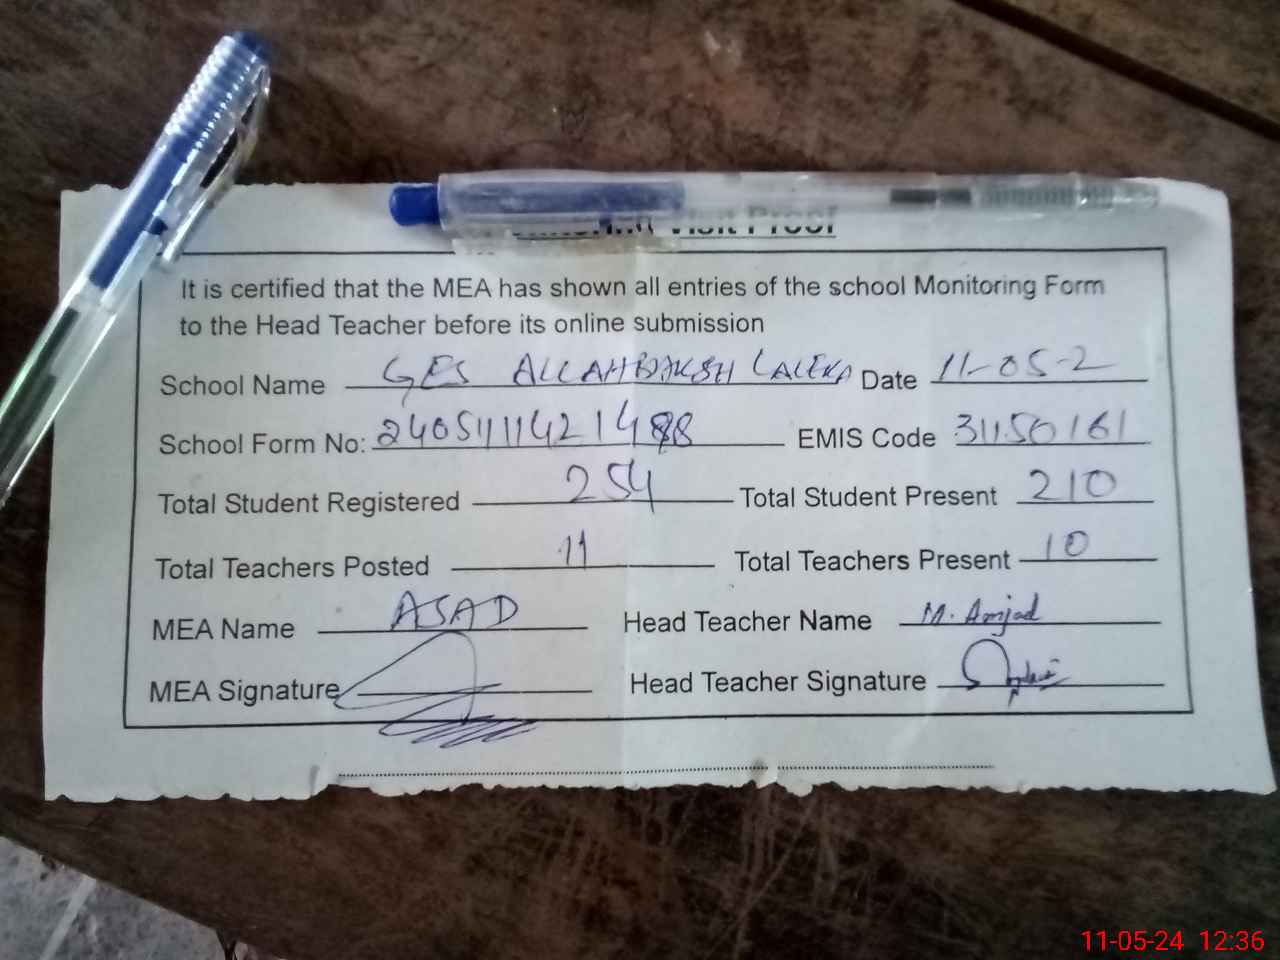 Visit Proof
It is certified that the MEA has shown all entries of the school Monitoring Form
to the Head Teacher before its online submission
School Name GES ALLAHBAKSH LALEKA Date 11-05-2
School Form No: 24051111421488 EMIS Code 31150161
Total Student Registered 254 Total Student Present 210
Total Teachers Posted 11 Total Teachers Present 10
MEA Name ASAD Head Teacher Name M. Amjad
MEA Signature Head Teacher Signature
11-05-24 12:36